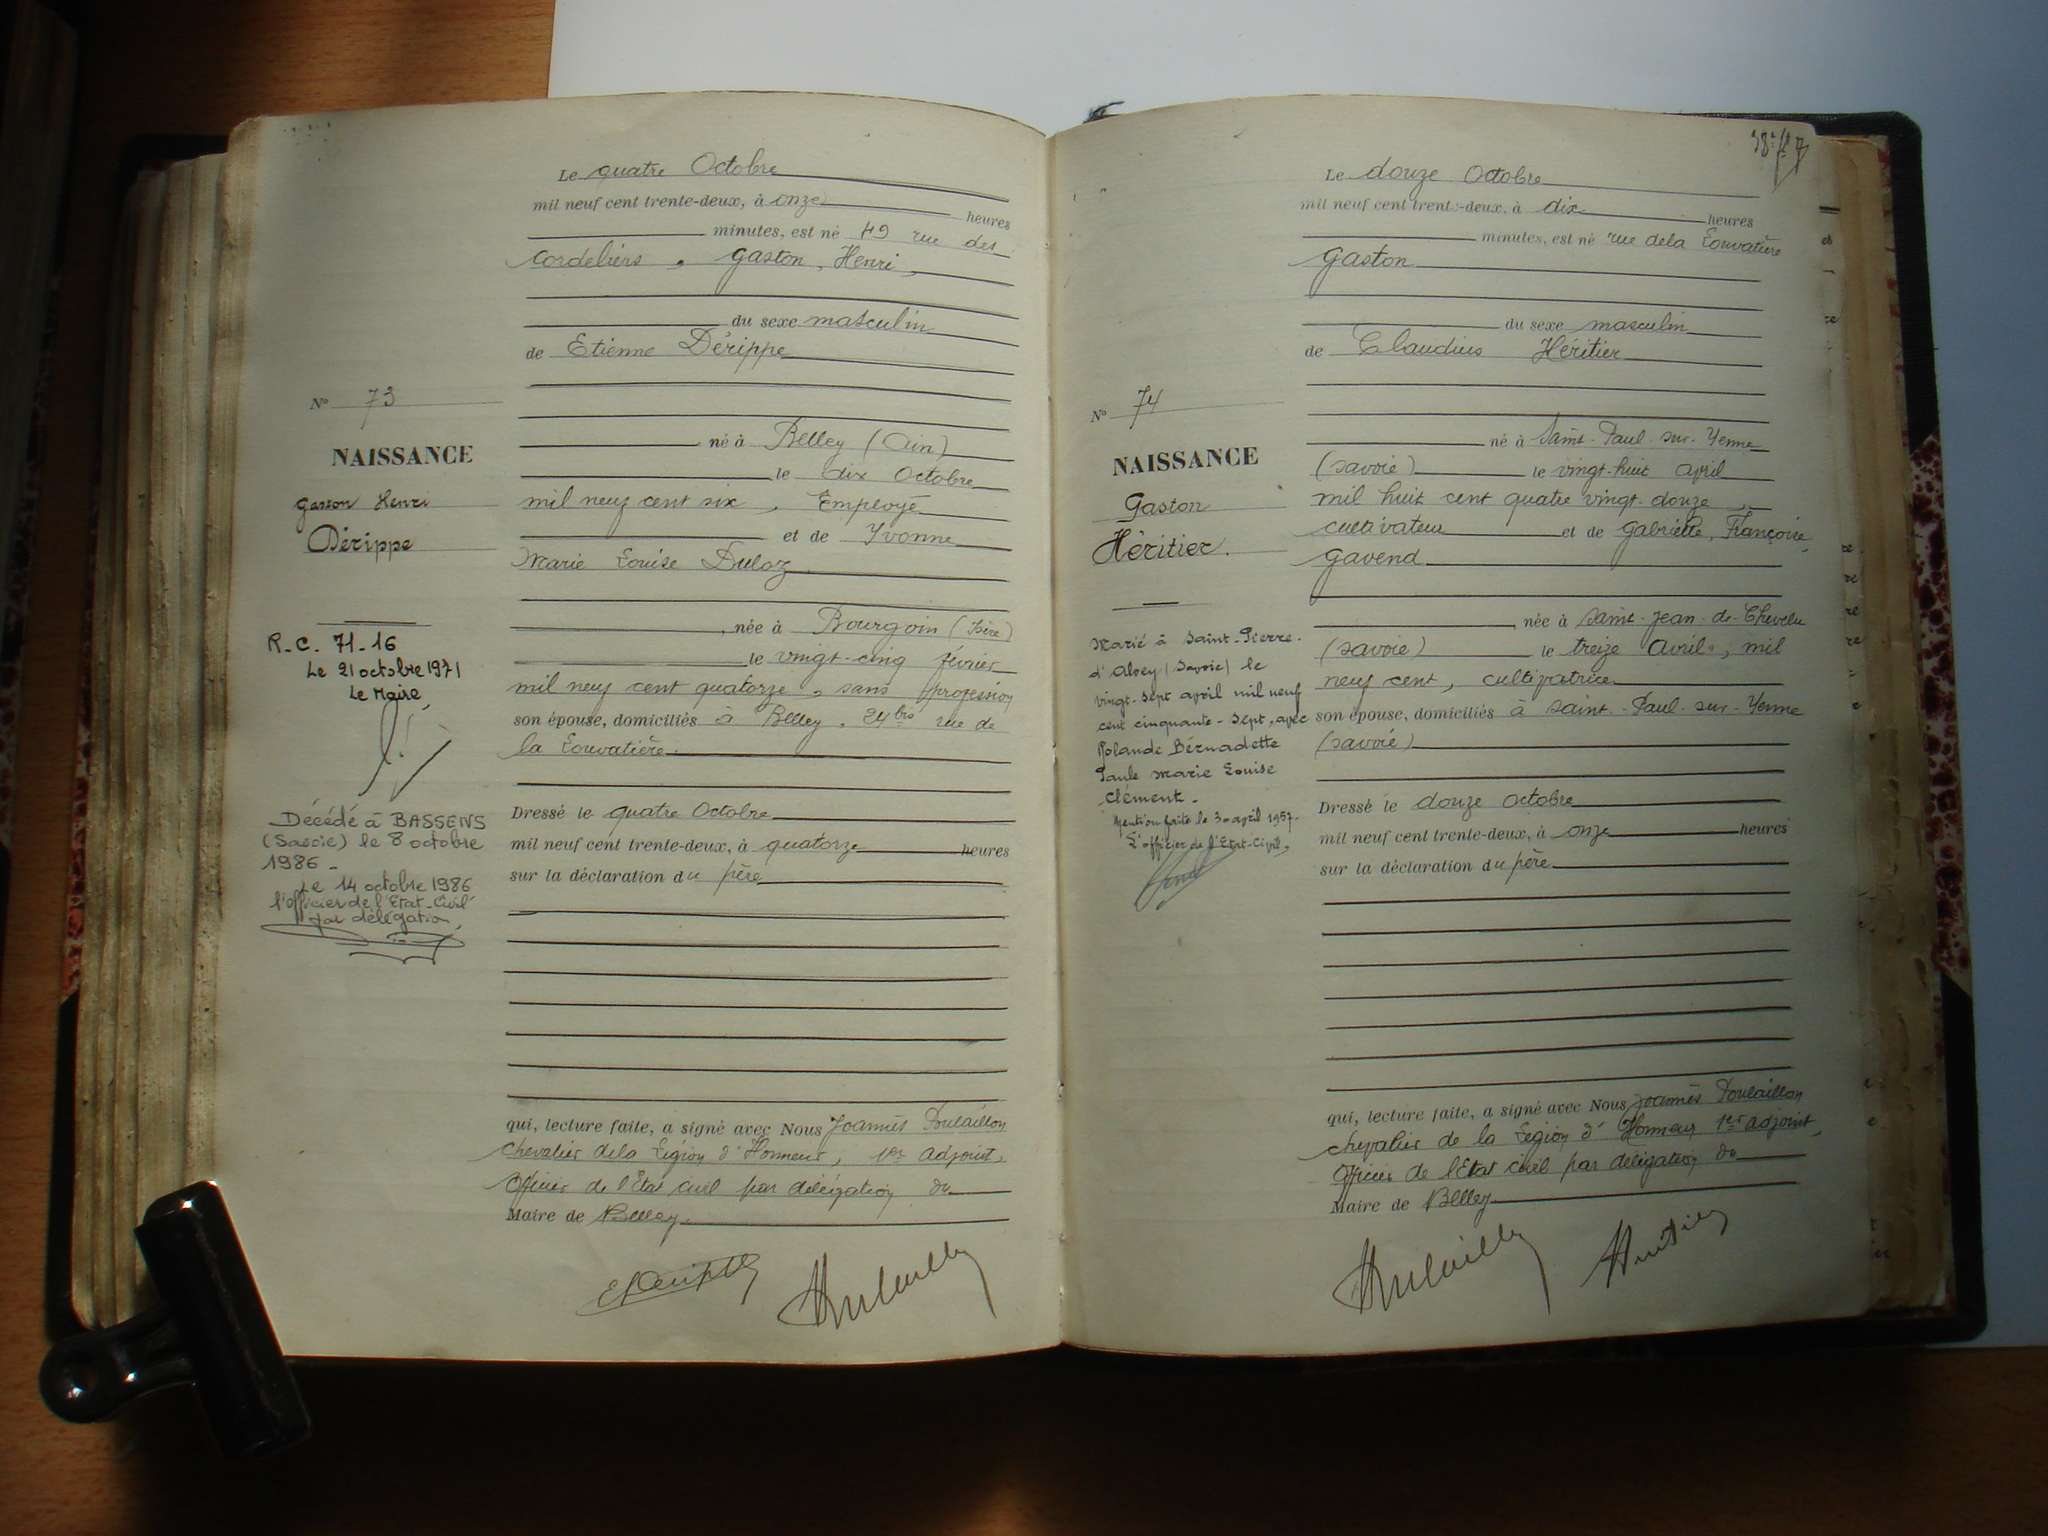 Le quatre Octobre
mil neuf cent trente-deux, à onze heures
minutes, est né 49 rue des
Cordeliers, Gaston, Henri,
du sexe masculin
de Etienne Dérippe
né à Belley (Ain)
le dix Octobre
mil neuf cent six, Employé
et de Yvonne
Marie Louise Duloz
née à Bourgoin (Isère)
le vingt-cinq février
mil neuf cent quatorze, sans profession
son épouse, domiciliés à Belley, 24 bis rue de
la Louvatière
Dressé le quatre Octobre
mil neuf cent trente-deux, à quatorze heures
sur la déclaration du père
qui, lecture faite, a signé avec Nous Joannès Poulaillon
Chevalier de la Légion d'Honneur, 1er adjoint,
Officier de l'Etat civil par délégation du
Maire de Belley.
N° 73
NAISSANCE
Gaston Henri
Dérippe
R.C. 71-16
Le 21 octobre 1971
Le Maire,
Décédé à BASSENS
(Savoie) le 8 octobre
1986 -
Le 14 octobre 1986
l'Officier de l'Etat-Civil
par délégation,
Le douze Octobre
mil neuf cent trente-deux, à dix heures
minutes, est né rue de la Louvatière
Gaston
du sexe masculin
de Claudius Héritier
né à Saint-Paul-sur-Yenne
(Savoie) le vingt-huit april
mil huit cent quatre vingt-douze,
cultivateur et de Gabrielle, Françoise,
Gavend
née à Saint-Jean-de-Chevelu
(Savoie) le treize Avril, mil
neuf cent, cultivatrice
son épouse, domiciliés à Saint-Paul-sur-Yenne
(Savoie)
Dressé le douze Octobre
mil neuf cent trente-deux, à onze heures
sur la déclaration du père
qui, lecture faite, a signé avec Nous Joannès Poulaillon
Chevalier de la Légion d'Honneur 1er adjoint,
Officier de l'Etat civil par délégation du
Maire de Belley
N° 74
NAISSANCE
Gaston
Héritier.
Marié à Saint-Pierre-
d'Alvey (Savoie) le
vingt-sept april mil neuf
cent cinquante-sept, avec
Yolande Bérnadette
Paule Marie Louise
Clément.
Mention faite le 30 april 1957.
L'officier de l'Etat-Civil,